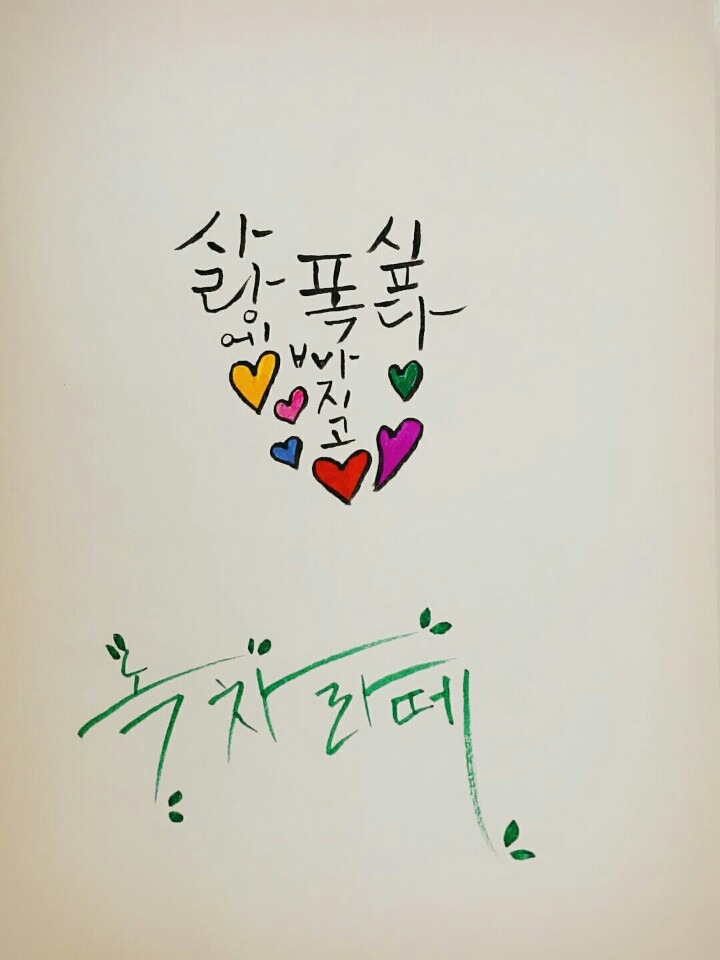 사랑에
폭 빠지고
싶다
녹차라떼